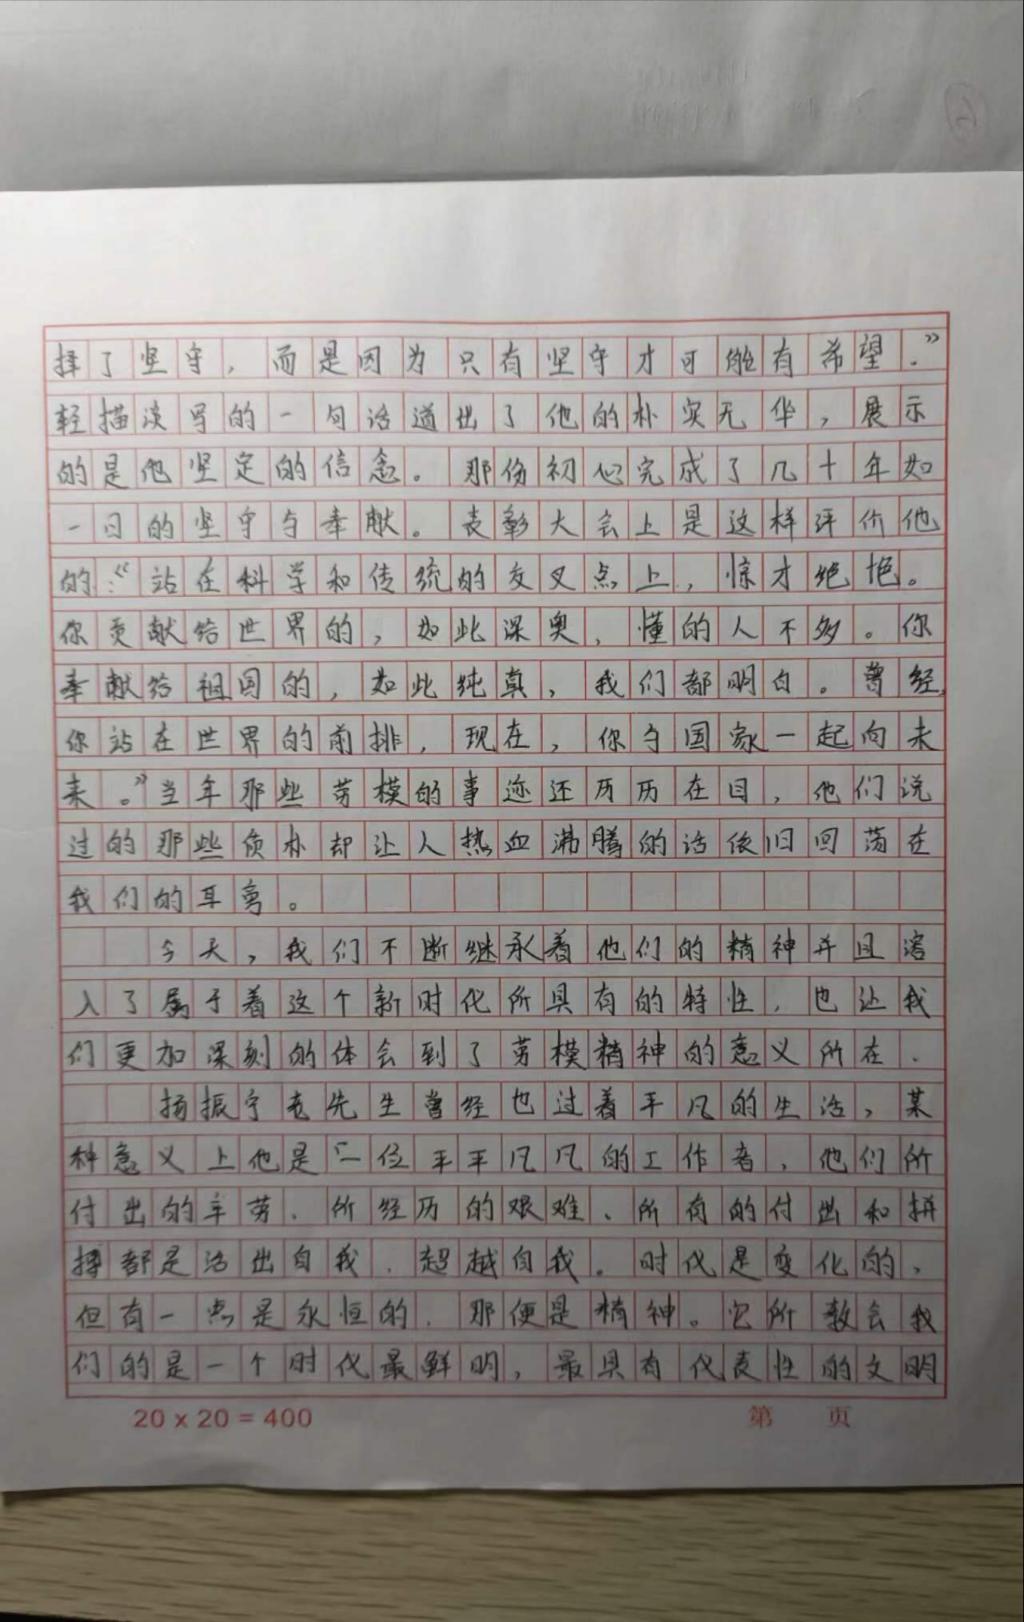 择了坚守，而是因为只有坚守才可能有希望."
轻描淡写的一句话道出了他的朴实无华，展示
的是他坚定的信念。那份初心完成了几十年如
一日的坚守与奉献。表彰大会上是这样评价他
的:"站在科学和传统的交叉点上，惊才绝艳。
你贡献给世界的，如此深奥，懂的人不多。你
奉献给祖国的，如此纯真，我们都明白。曾经,
你站在世界的前排，现在，你与国家一起向未
来。"当年那些劳模的事迹还历历在目，他们说
过的那些质朴却让人热血沸腾的话依旧回荡在
我们的耳旁。
今天，我们不断继承着他们的精神并且溶
入了属于着这个新时代所具有的特性，也让我
们更加深刻的体会到了劳模精神的意义所在.
扬振宁老先生曾经也过着平凡的生活，某
种意义上他是一位平平凡凡的工作者，他们所
付出的辛劳、所经历的艰难、所有的付出和拼
搏都是活出自我、超越自我。时代是变化的，
但有一点是永恒的，那便是精神。它所教会我
们的是一个时代最鲜明，最具有代表性的文明
20 x 20 = 400 第 页